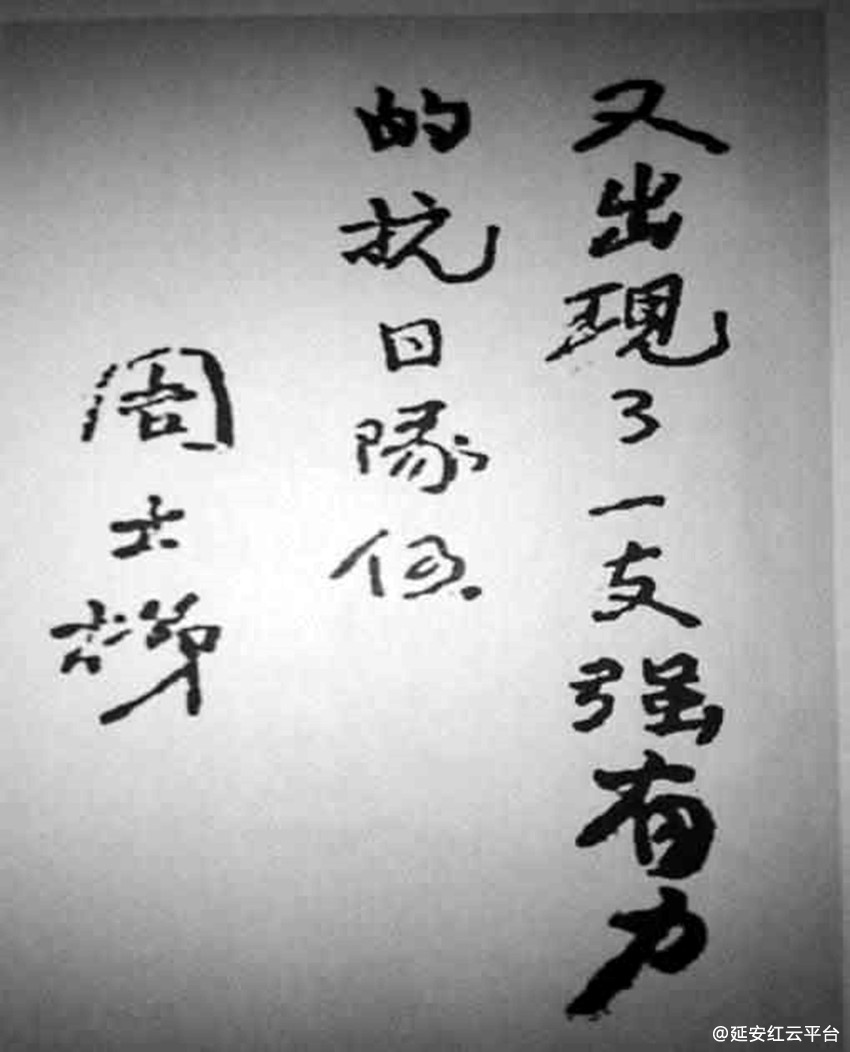 又出現了一支强有力
的抗日隊伍.
周士梯
@延安红云平台